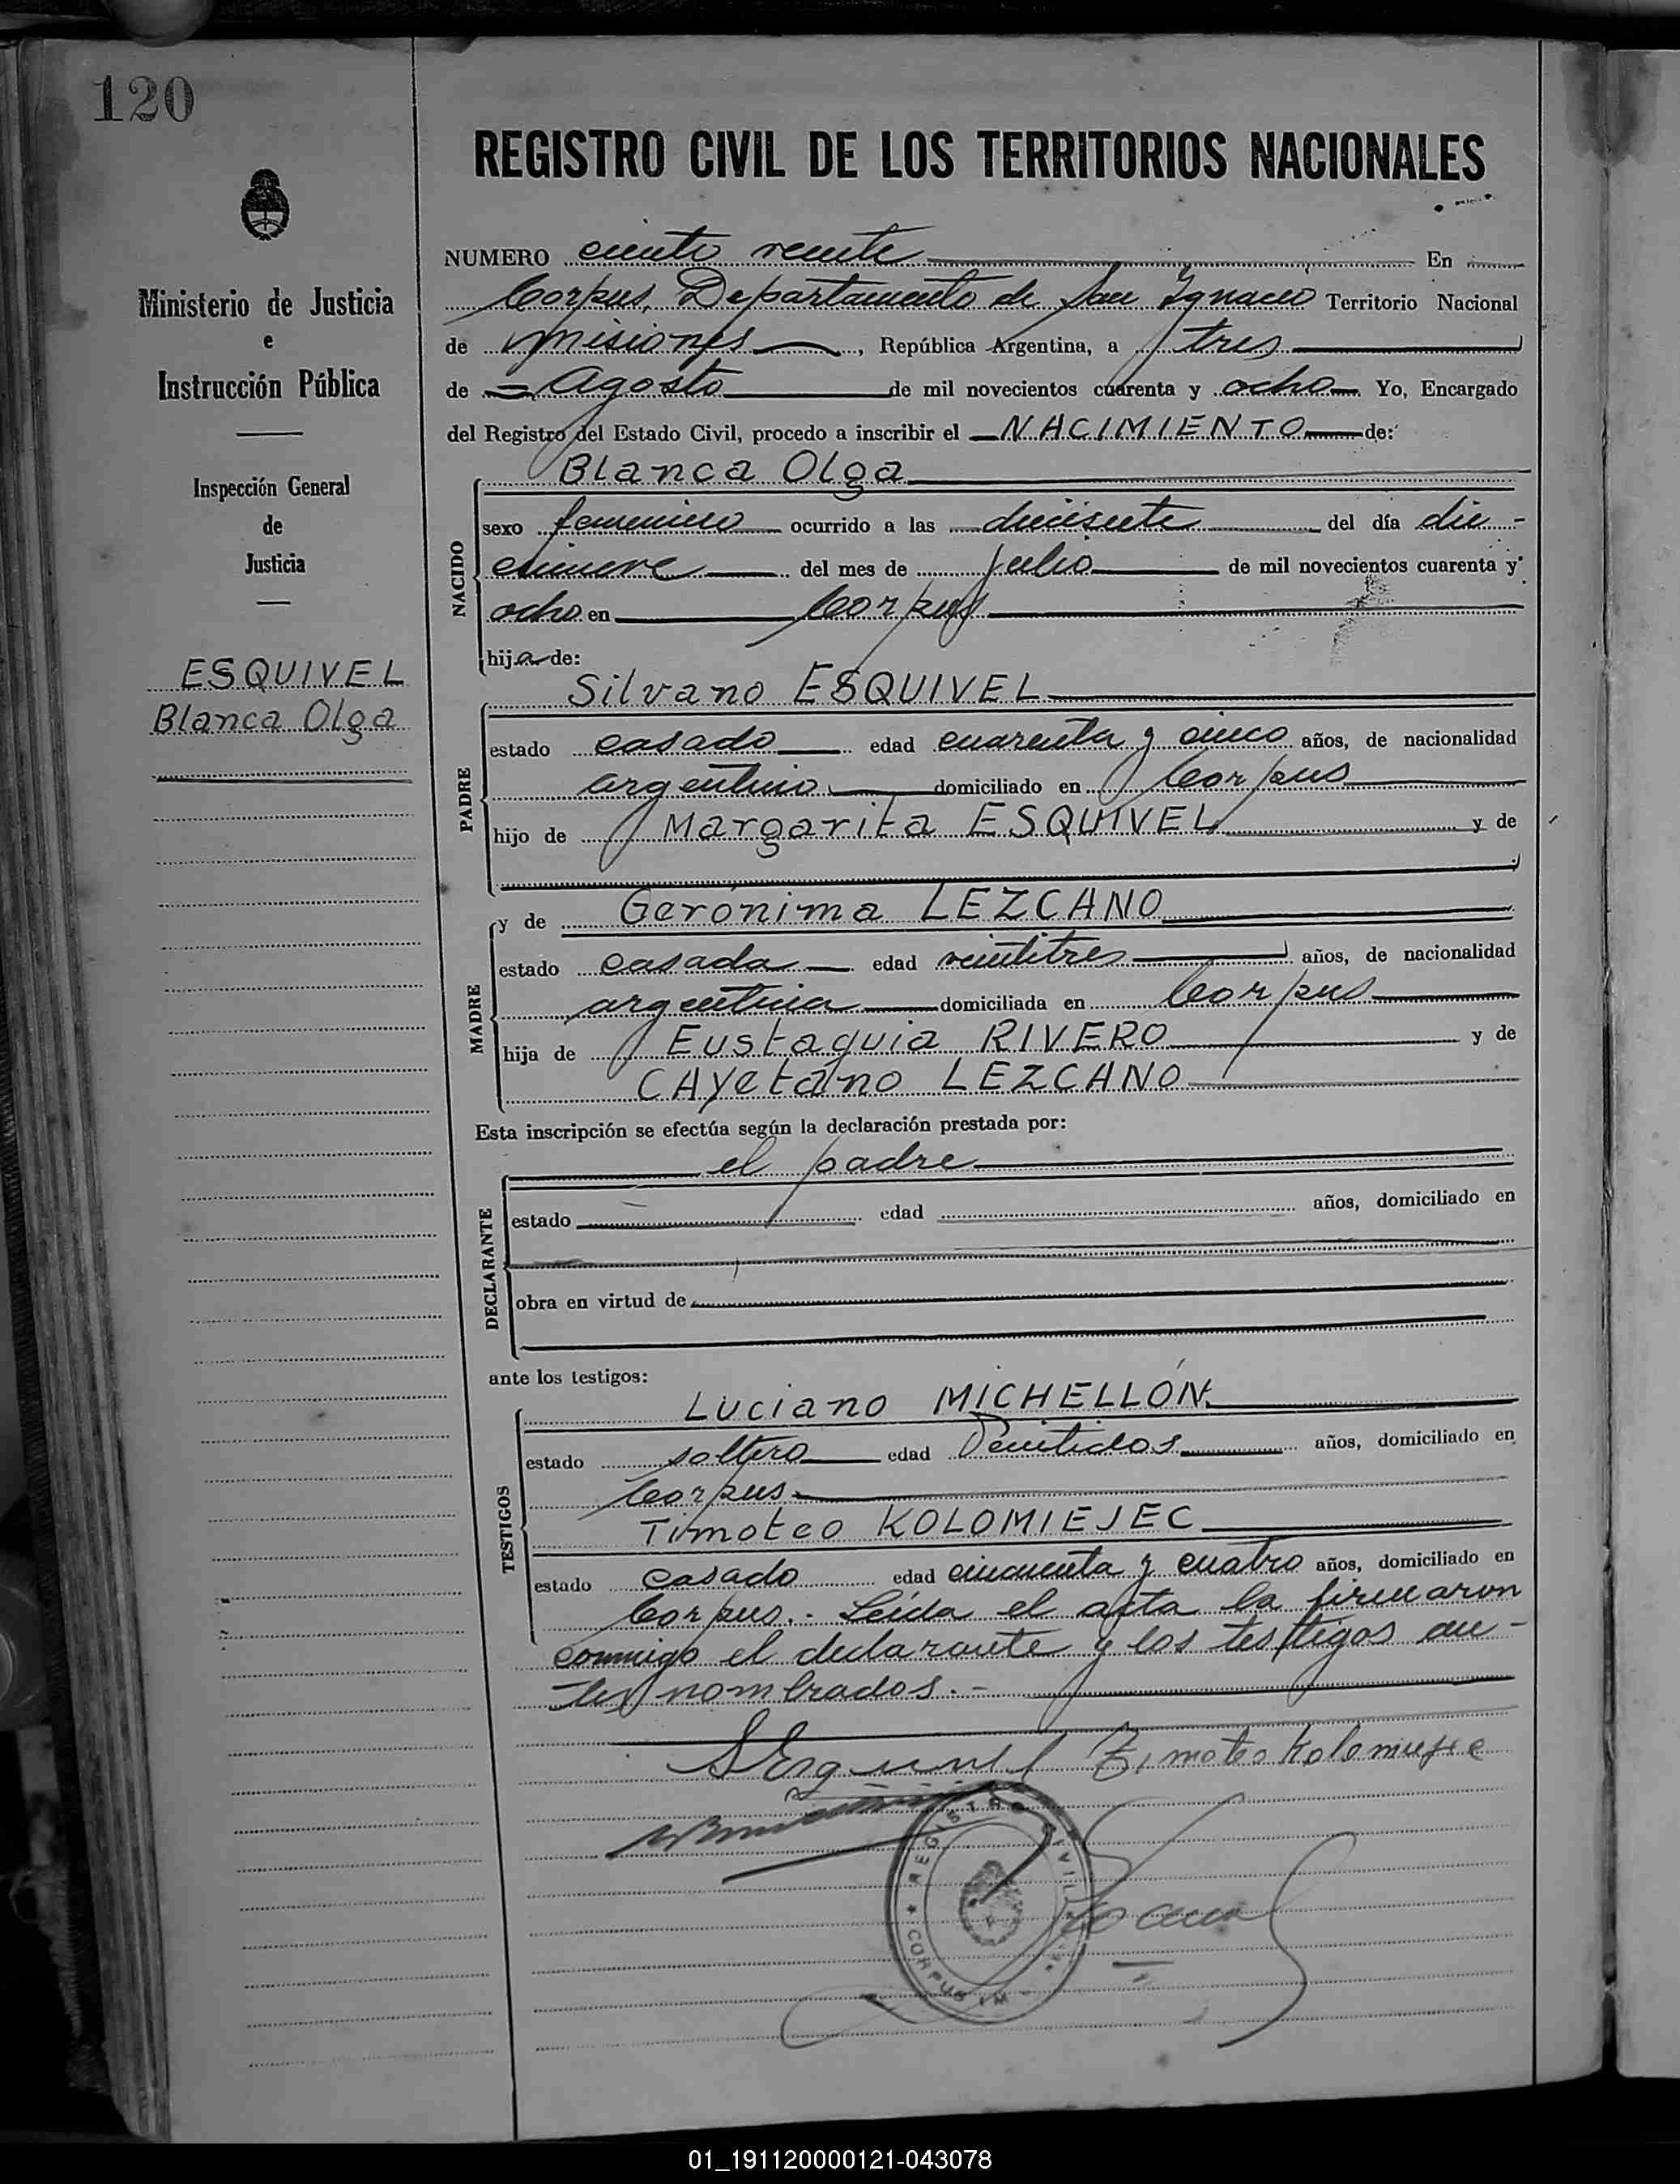 120
REGISTRO CIVIL DE LOS TERRITORIOS NACIONALES
Ministerio de Justicia
e
Instrucción Pública
Inspección General
de
Justicia
ESQUIVEL
Blanca Olga
NUMERO ciento veinte En
Corpus, Departamento de San Ignacio Territorio Nacional
de Misiones, República Argentina, a tres
de Agosto de mil novecientos cuarenta y ocho Yo, Encargado
del Registro del Estado Civil, procedo a inscribir el NACIMIENTO de:
NACIDO
Blanca Olga
sexo femenino ocurrido a las diecisiete del día die-
cinueve del mes de julio de mil novecientos cuarenta y
ocho en Corpus
hija de:
PADRE
Silvano ESQUIVEL
estado casado edad cuarenta y cinco años, de nacionalidad
argentino domiciliado en Corpus
hijo de Margarita ESQUIVEL y de
MADRE
y de Gerónima LEZCANO
estado casada edad veintitres años, de nacionalidad
argentina domiciliada en Corpus
hija de Eustaquia RIVERO y de
CAyetano LEZCANO
Esta inscripción se efectúa según la declaración prestada por:
DECLARANTE
el padre
estado edad años, domiciliado en
obra en virtud de
ante los testigos:
TESTIGOS
Luciano MICHELLÓN
estado soltero edad Veintidos años, domiciliado en
Corpus
Timoteo KOLOMIEJEC
estado casado edad cincuenta y cuatro años, domiciliado en
Corpus.- Leída el acta la firmaron
conmigo el declarante y los testigos an-
tes nombrados.-
SEsquivel Timoteo
REGISTRO CIVIL
CORPUS
01_191120000121-043078